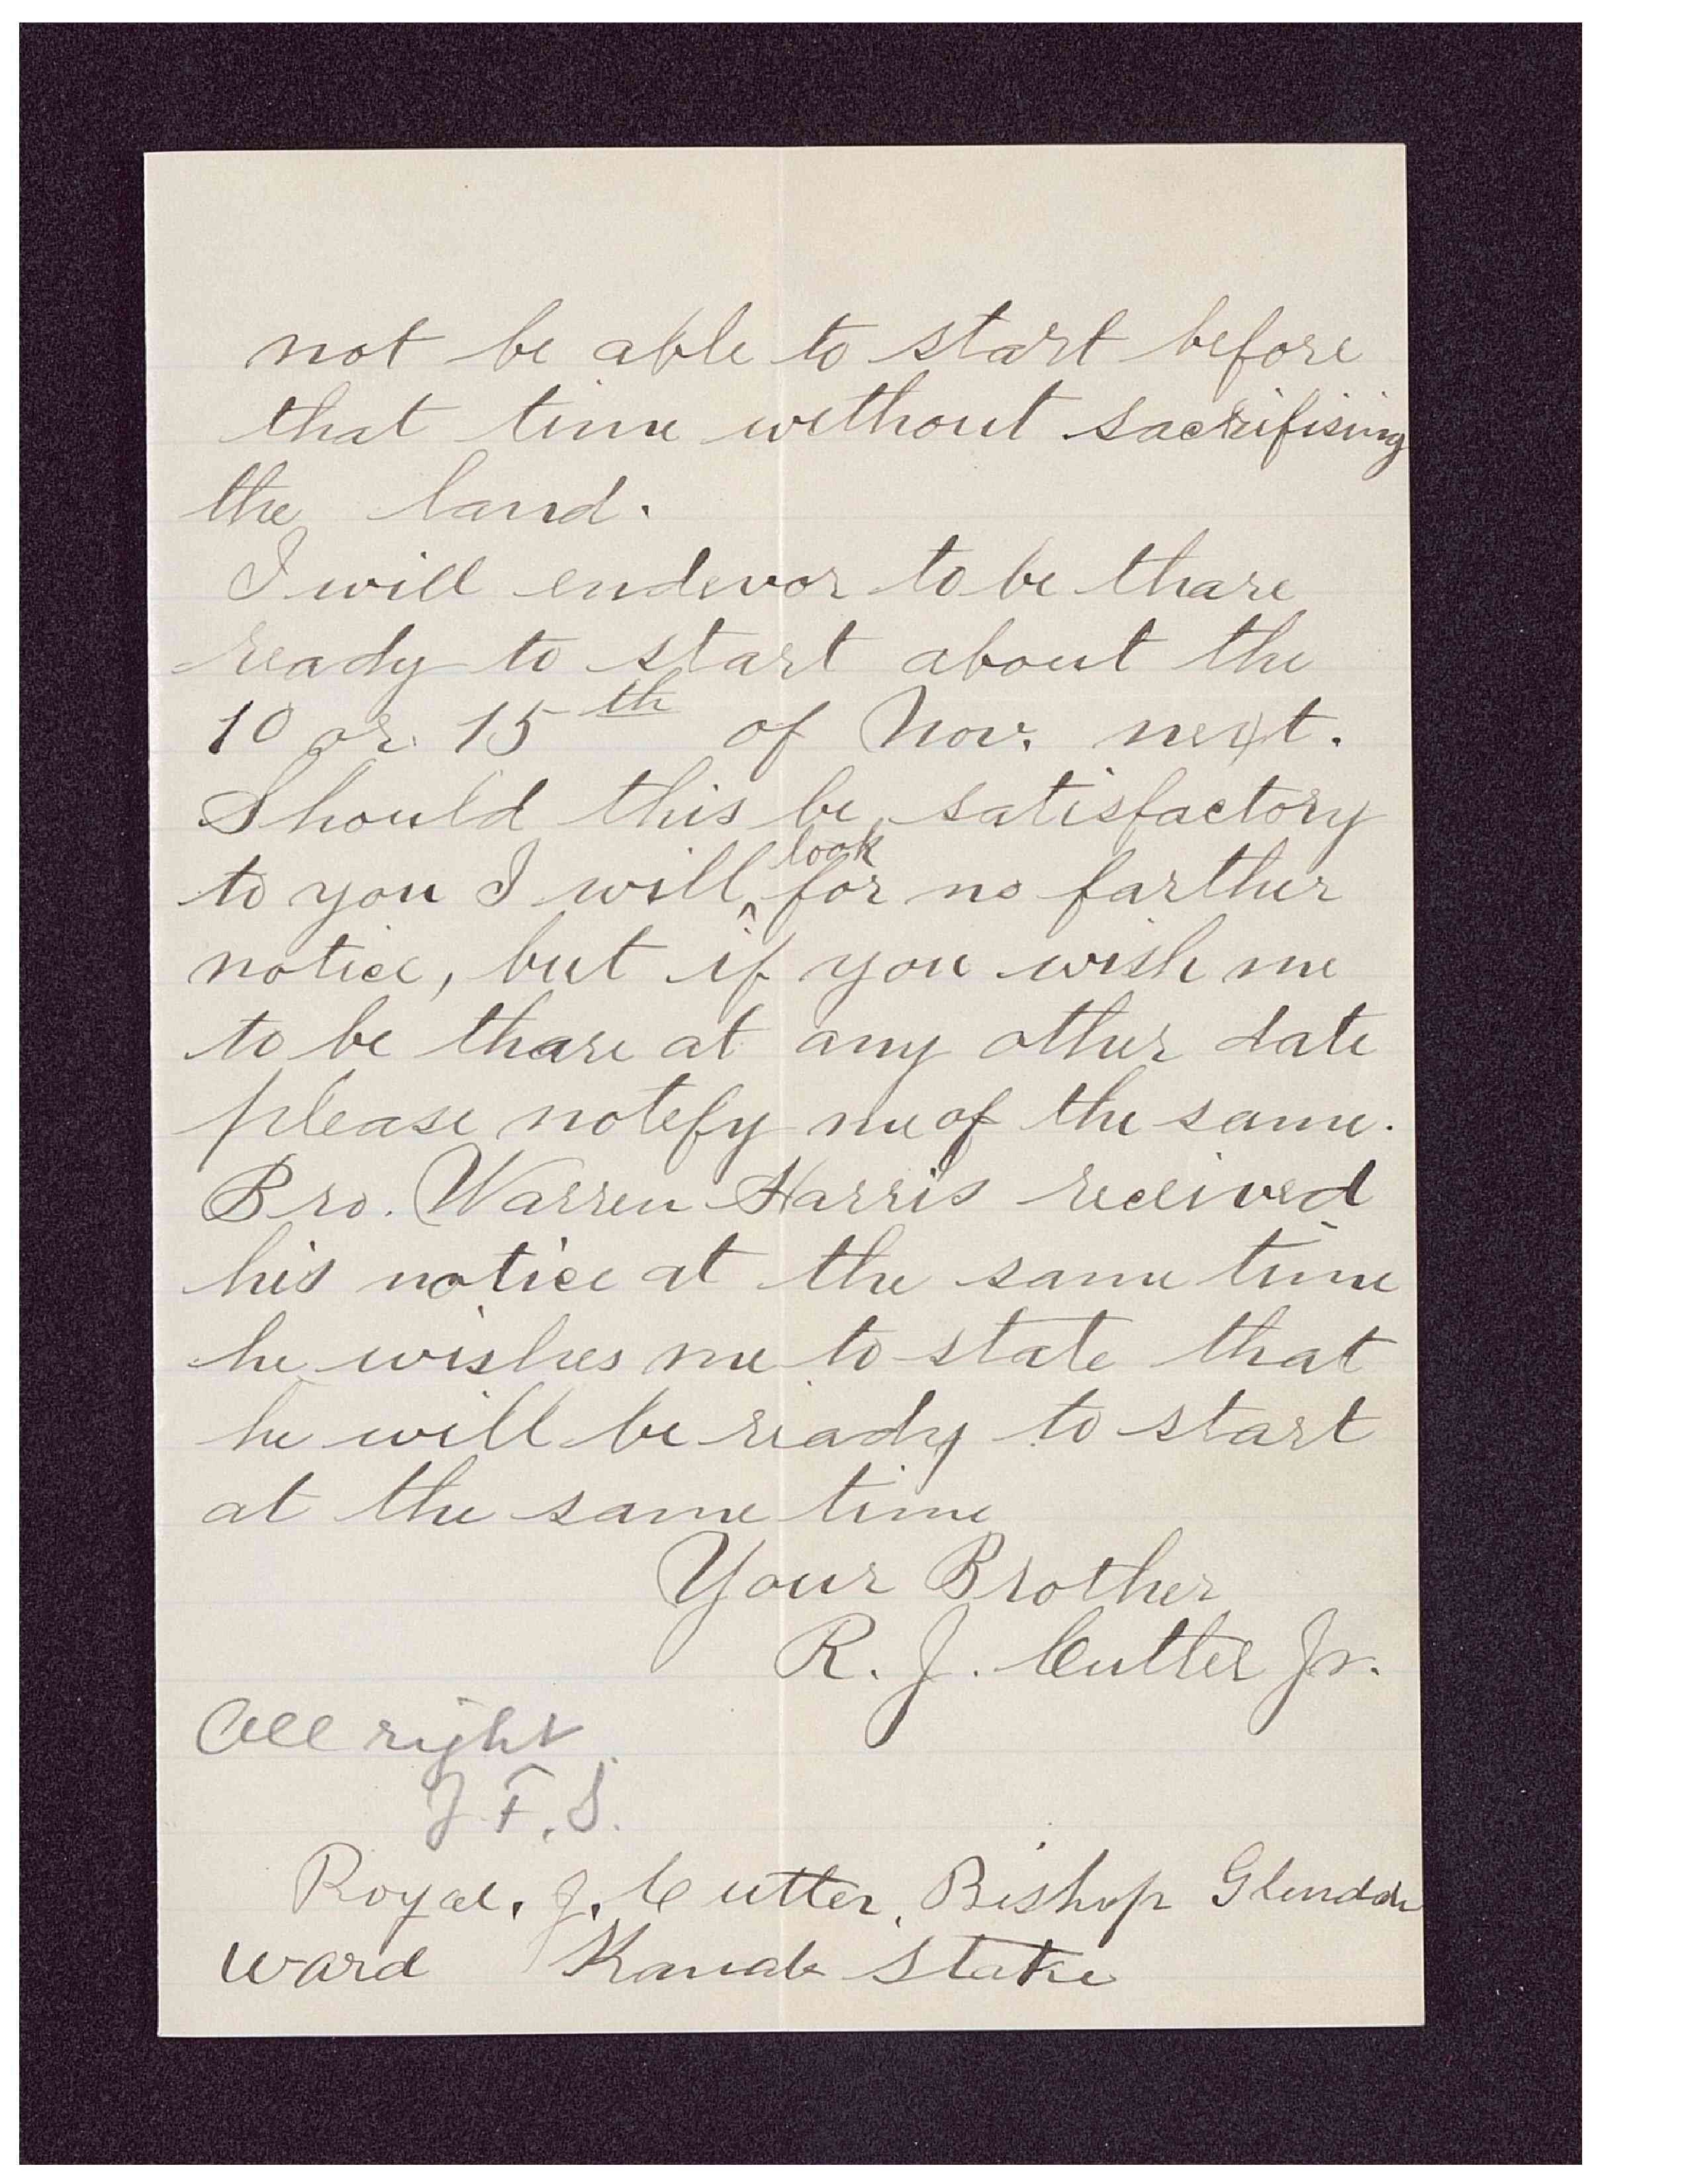 not be able to start before
that time without sacrifising
the land.
I will endevor to be thare
ready to start about the
10 or 15th of Nov. next.
Should this be satisfactory
to you I will ^look for no farther
notice, but if you wish me
to be thare at any other date
please notefy me of the same.
Bro. Warren Harris received
his notice at the same time
he wishes me to state that
he will be ready to start
at the same time
Your Brother
R. J. Cutler Jr.
All right
J. F. S.
Royal. J. Cutler, Bishop Glendale
ward Kanab Stake